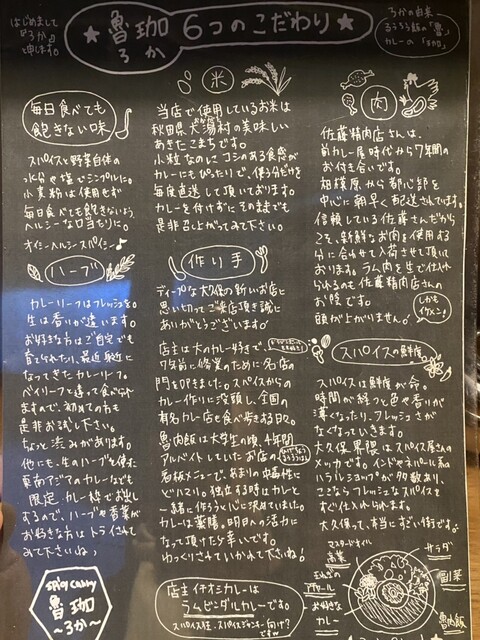 はじめまして
『ろか』と
申します。
★ 魯珈 6つのこだわり ★
ろか
ろかの由来
るうろう飯の「魯」
カレーの「珈」
毎日食べても
飽きない味
スパイスと野菜自体の
水分や塩でシンプルに。
小麦粉は使用せず
毎日食べても飽きないよう、
ヘルシーな口当たりに。
オイシイヘルシスパイシー♪
ハーブ
カレーリーフはフレッシュを。
生は香りが違います。
お好きな方はご自宅でも
育てられたり、最近身近に
なってきたカレーリーフ。
ベイリーフと違って食べられ
ますので、初めての方も
是非お試し下さい。
ちょっと渋みがあります。
他にも、生のハーブを使った
東南アジアのカレーなども
限定カレー枠でお出し
するので、ハーブや香菜が
お好きな方はトライされて
みて下さいね♪
spicy curry
魯珈
~ろか~
米
当店で使用しているお米は
秋田県大潟村の美味しい
あきたこまちです。
小粒なのにコシのある食感が
カレーにもぴったりで、使う分だけを
毎度直送して頂いております。
カレーを付けずにそのままでも
是非召し上がってみて下さい。
作り手
ディープな大久保の新しいお店に
思い切ってご来店頂き誠に
ありがとうございます!
店主は大のカレー好きで、
7年前に修業のために名店の
門を叩きました。スパイスからの
カレー作りに没頭し、全国の
有名カレー店を食べ歩きする日々。
魯肉飯は大学生の頃、4年間
アルバイトしていたお店の
看板メニューで、あまりの中毒性に
どハマり。独立する時はカレーと
一緒に作ろうと心に決めていました。
カレーは薬膳。明日への活力に
なって頂けたら幸いです。
ゆっくりされていかれて下さいね!
店主イチオシカレーは
ラムビンダルカレーです。
スパイス狂、スパイスジャンキー向け?
ですw
肉
佐藤精肉店さんは、
前カレー屋時代から7年間の
お付き合いです。
相模原から都心部を
中心に朝早く配送されています。
信頼している佐藤さんだから
こそ、新鮮なお肉を使用する
分に合わせて入荷させて頂いて
おります。ラム肉を生で仕入れ
られるのも佐藤精肉店さんの
お陰です。
頭が上がりません!
しかも
イケメン!
スパイスの鮮度
スパイスは鮮度が命。
時間が経つと色や香りが
薄くなったり、フレッシュさが
なくなっていきます。
大久保界隈はスパイス屋さんの
メッカです。インドやネパール系の
ハラルショップが多数あり、
ここならフレッシュなスパイスを
すぐ仕入れられます。
大久保って、本当にすごい街です♪
マスタードオイル
高菜
玉ねぎの
アチャール
お好きな
カレー
サラダ
副菜
魯肉飯